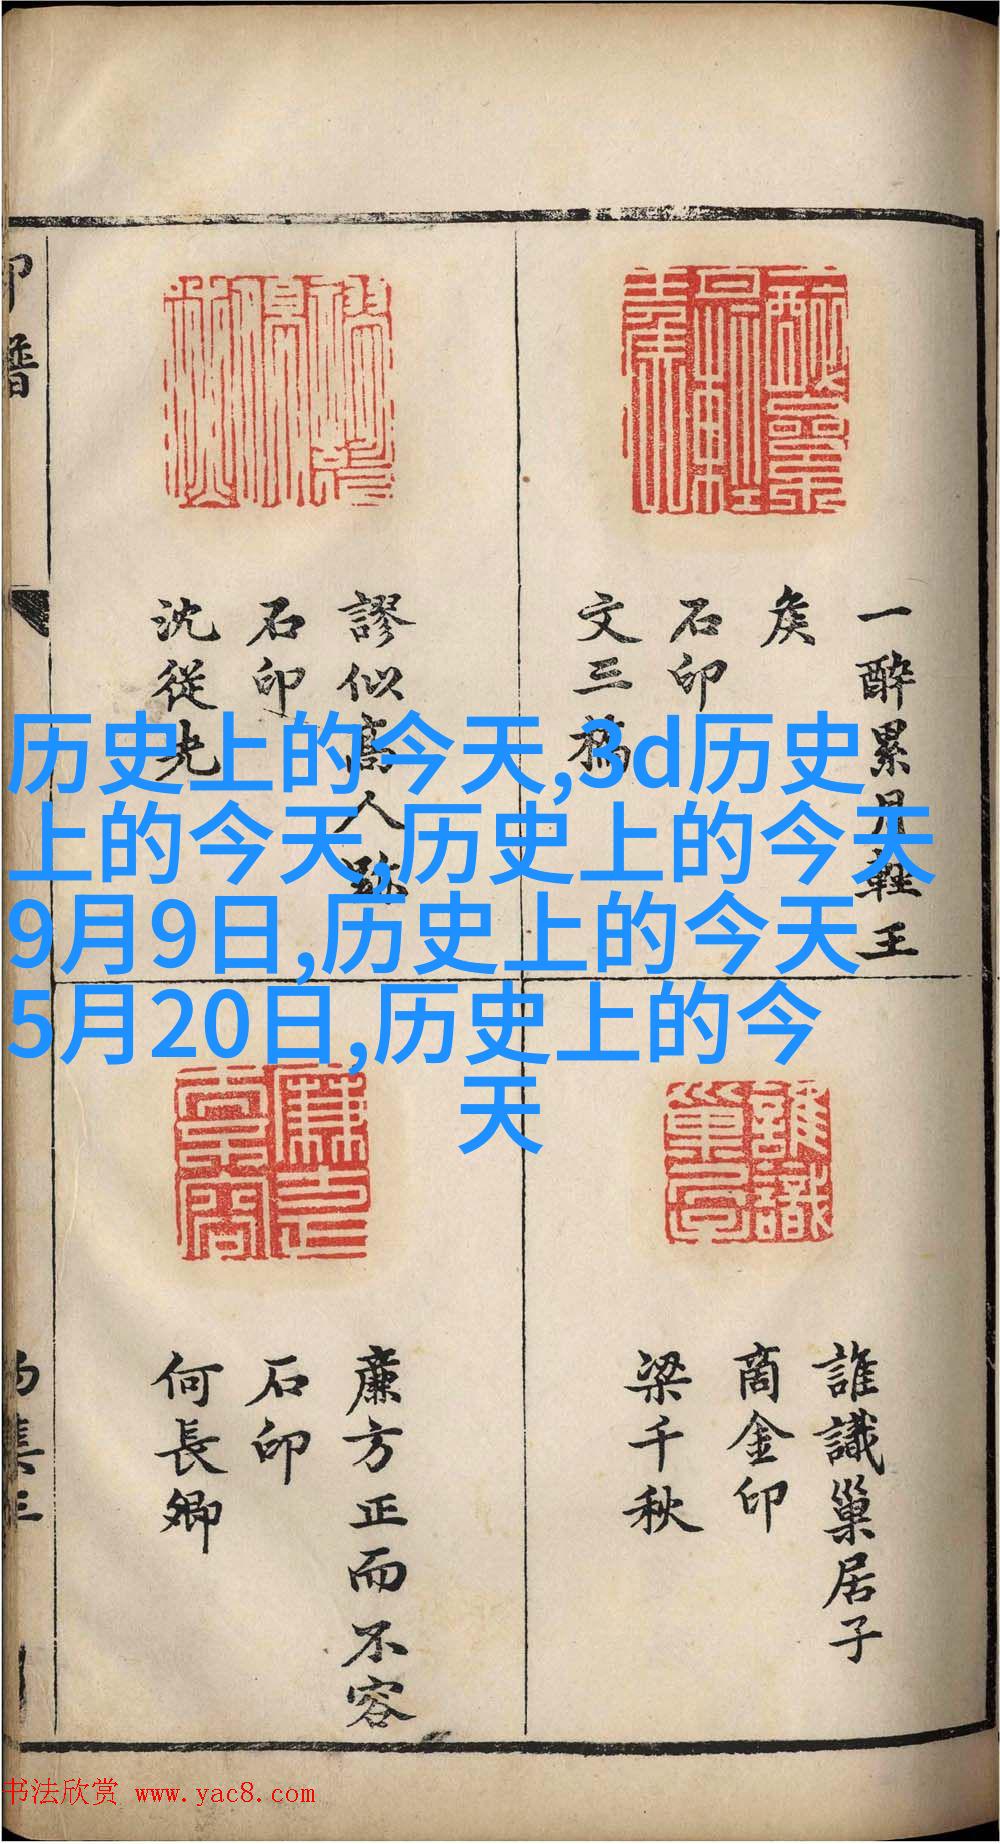 历史上的今天,3d历史
上的今天,历史上的今天
9月9日,历史上的今天
5月20日,历史上的今
天
一醉累月輕王
矦
石印
文三橋
謬似高人跡
石印
沈從先
誰識巢居子
商金印
梁千秋
廉方正而不容
石印
何長卿
印譜
书法欣赏 www.yac8.com